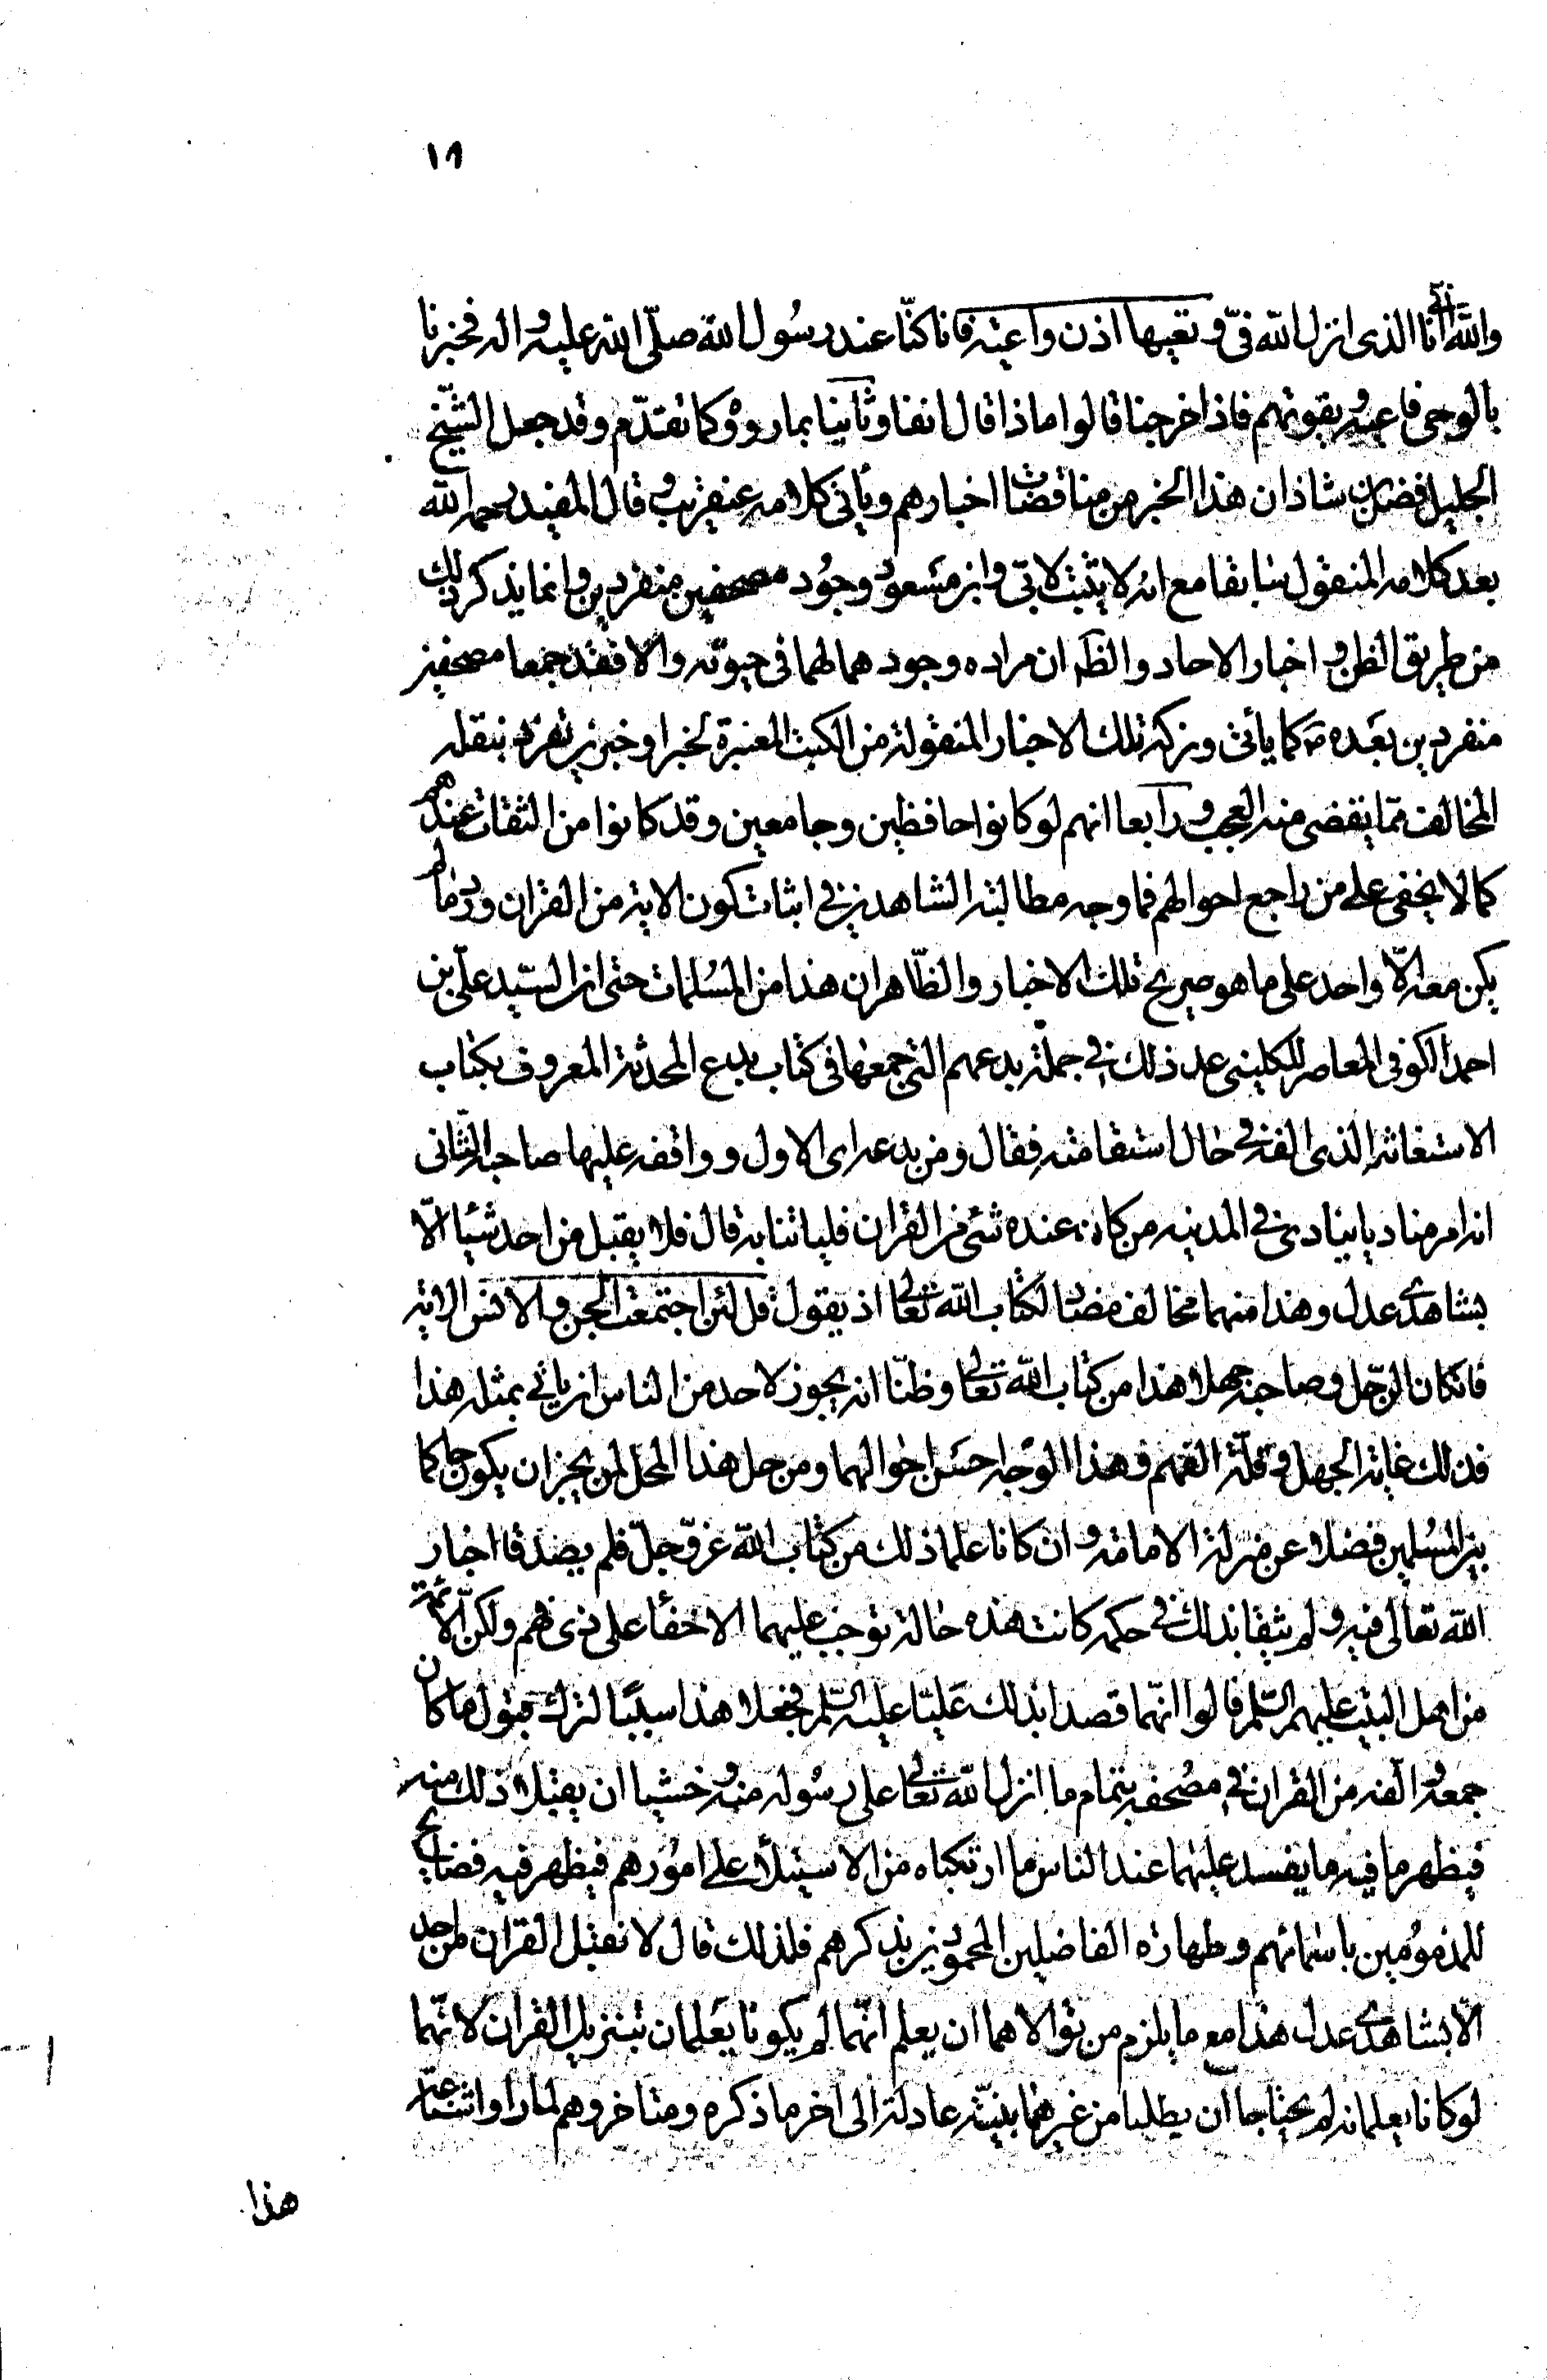 ١٨
والله انى انا الذى انزل الله فىّ و تعيها اذن واعية فانا كنّا عند رسُول الله صلّى الله عليه واله فخبرنا
بالوحى فاعيه و يفوتهم فاذا خرجنا قالوا ماذا قال انفا و ثانيا بما رووْ كما تقدّم وقد جعل الشّيخ
الجليل فضل بن شاذان هذا الخبر من مناقضات اخبارهم و ياتى كلامه عنقريب و قال المفيد رحمه الله
بعد كلامه المنقول سابقا مع انه لا يثبت لابىّ وابن مسعود وجُود مصحفين منفردين وانما يذكر ذلك
من طريق الظن و اخبار الاحاد والظ ان مراده وجودهما لهما فى حيوته والا فقد جمعا مصحفين
منفردين بعَده ص كما يأتى و تركه تلك الاخبار المنقولة من الكتب المعتبرة لخبر او خبرين تفرد بنقله
المخالف ممّا يقضى منه العجب و رابعا انهم لو كانوا حافظين وجامعين وقد كانوا من الثقات عندهم
كما لا يخفى على من راجع احوالهم فما وجه مطالبة الشاهدين فى اثبات كون الاية من القران و رد ما لم
يكن معه الّا واحد على ما هو صريح تلك الاخبار والظّاهر ان هذا من المسُلمات حتى ان السّيد علىّ بن
احمد الكوفى المعاصر للكلينى عد ذلك فى جملة بدعهم التى جمعها فى كتاب بدع المحدثة المعروف بكتاب
الاستغاثة الذى الفه فى حال استقامته فقال ومن بدعه اى الاول و واقفه عليها صاحبه الثّانى
انه امر مناديا ينادى فى المدينه من كان عنده شئ من القران فلياتنا به قال فلا يقبل من احد شيئا الّا
بشاهدى عدل وهذا منهما مخالف مضاد لكتاب الله تعالى اذ يقول قل لئن اجتمعت الجن والانس الاية
فان كان الرّجل و صاحبه جهلا هذا من كتاب الله تعالى وظنّا انه يجوز لاحد من الناس ان ياتى بمثله هذا
فذلك غاية الجهل و قلّة الفهم و هذا الوجه احسَن احوالهما ومن حل هذا المحل لم يجز ان يكون حاكما
بين المسُلمين فضلا عن منزلة الامامة و ان كانا علما ذلك من كتاب الله عزّ و جلّ فلم يصدقا اخبار
الله تعالى فيه و لم يثقا بذلك فى حكمه كانت هذه حالة توجب عليهما الاخفا على ذى فهم ولكنّ الائمّة
من اهل البيت عليهم السّلم قالوا انّهما قصدا بذلك عَليّا عليه السّلم فجعلا هذا سببًا لترك قبول ما كان
جمعه و الّفه من القران فى مصُحفه بتمام ما انزل الله تعالى على رسُوله منه و خشيا ان يقبلا ذلك منه
فيظهر ما فيه ما يفسد عليهما عند الناس ما ارتكباه من الاستيلآء على امُورهم فيظهر فيه فضايح
للمذموُمين باسمائهم وطهارة الفاضلين المحمودين بذكرهم فلذلك قال لا نقبل القران من احد
الّا بشاهدى عدل هذا مع ما يلزم من توالاهما ان يعلم انّهما لم يكونا يعَلمان تبنزيل القران لانّهما
لو كانا يعلمانه لم يحتاجا ان يطلبا من غيرهما ببيّنة عادلة الى اخر ما ذكره و متاخروهم لما راوا شناعة
هذا